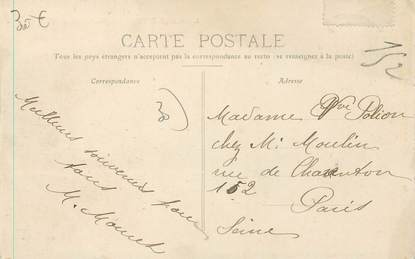 30 €
152
CARTE POSTALE
Tous les pays étrangers n'acceptent pas la correspondance au recto (se renseigner à la poste)
Correspondance
Adresse
30
Meilleurs souvenirs pour
tous
M.
Madame Vve Polion
chez Mr Moulin
rue de Charenton
152
Paris
Seine